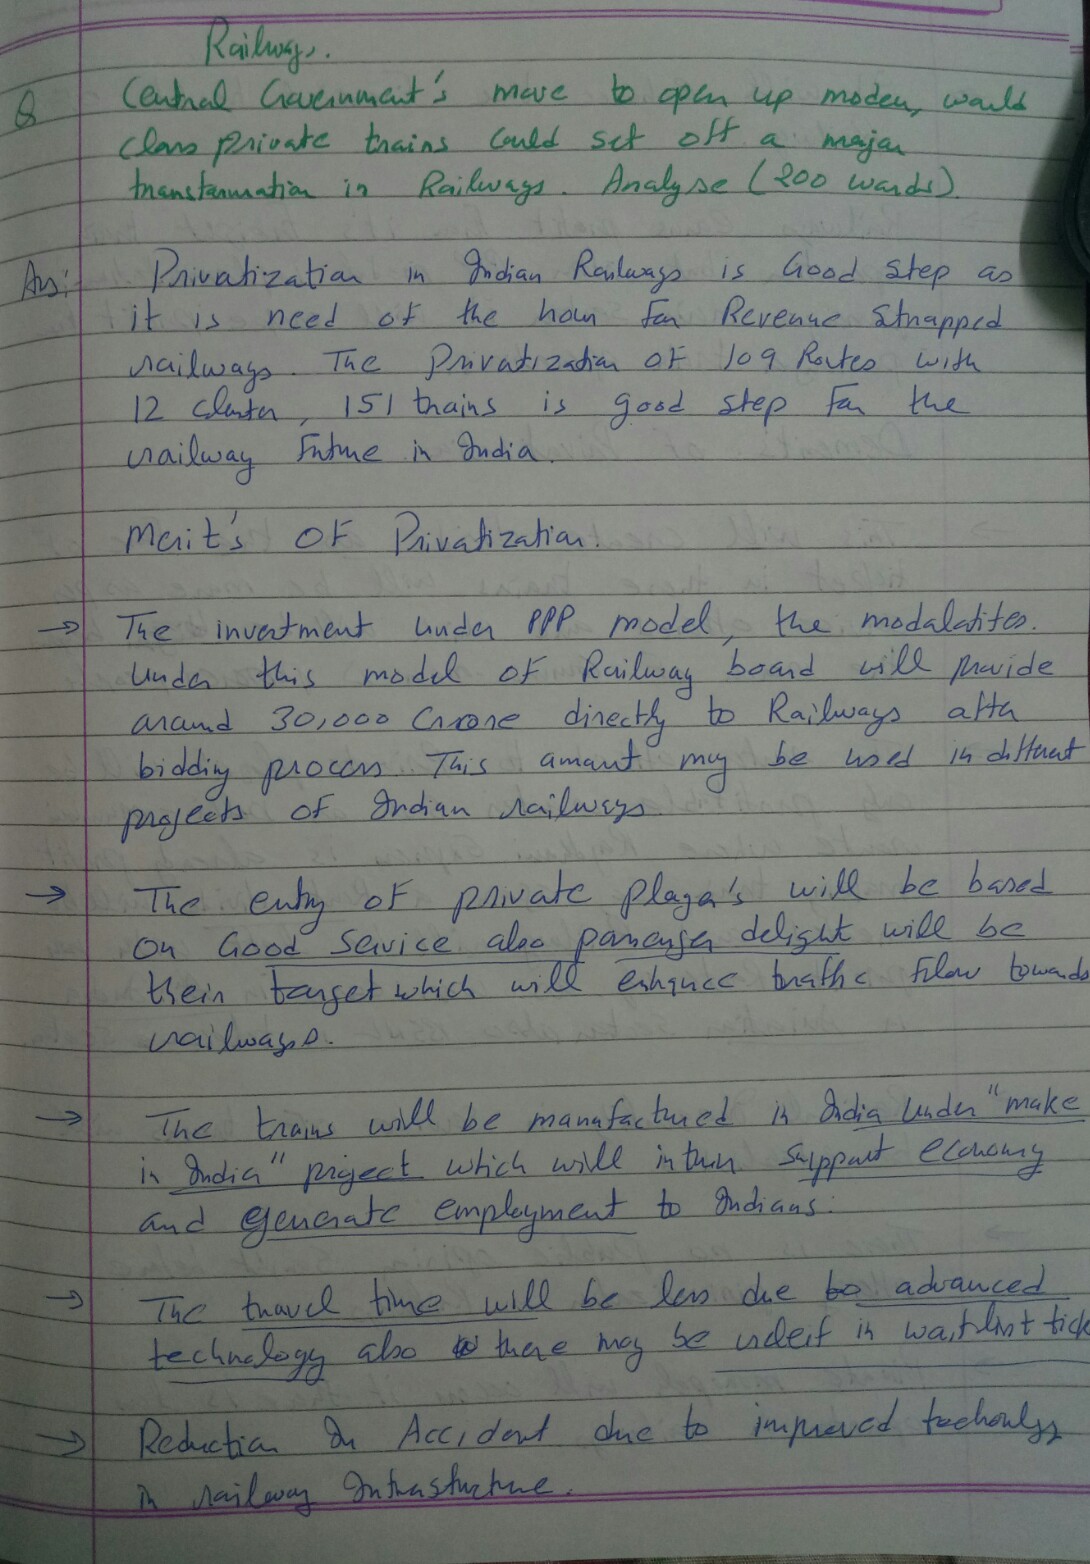 Railways.
Q Central Government's move to open up modern, world
class private trains could set off a major
transformation in Railways. Analyse (200 words)
Ans: Privatization in Indian Railways is Good step as
it is need of the hour for Revenue Strapped
railways. The Privatization of 109 Routes with
12 cluster, 151 trains is good step for the
railway Future in India.
Merit's OF Privatization.
→ The investment under PPP model, the modalatites.
Under this model of Railway board will provide
around 30,000 Crore directly to Railways after
bidding process. This amount may be used in different
projects of Indian railways
→ The entry of private player's will be based
on Good Service also passenger delight will be
their target which will enhance traffic flow towards
railways.
→ The trains will be manufactured in India Under "make
in India" project which will inturn support economy
and generate employment to Indians.
→ The travel time will be less due to advanced
technology also there may be in waitlist tick
→ Reduction In Accident due to improved
in railway Infrasturture.